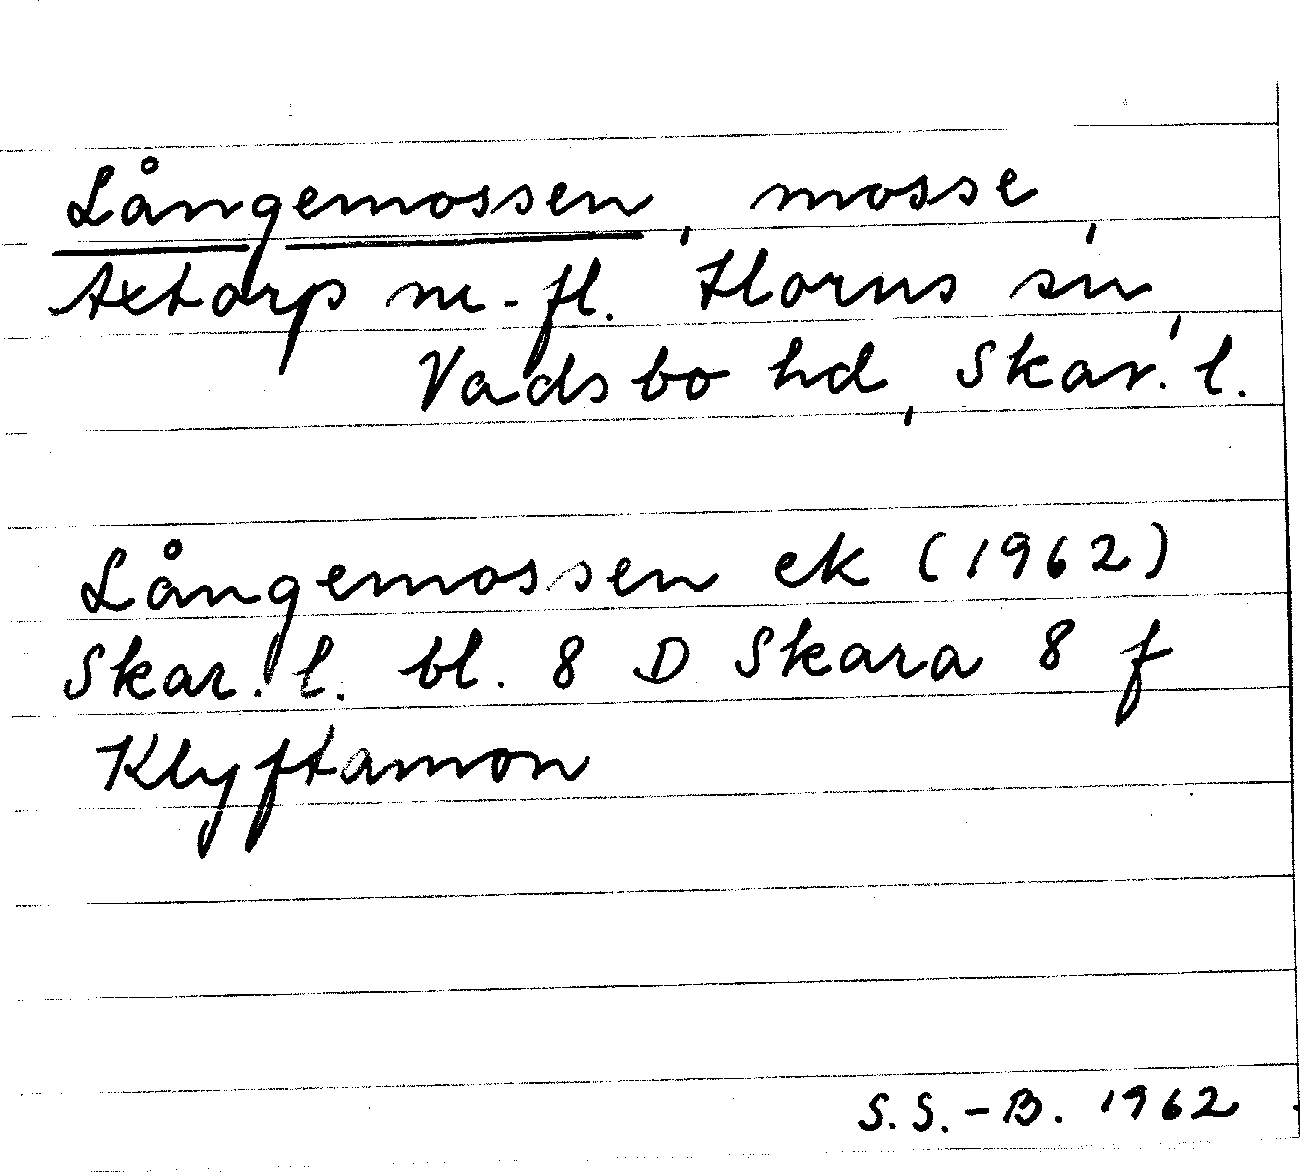 Långemossen, mosse,
Axtorp m. fl. Horns sn,
Vadsbo hd, Skar. l.
Långemossen ek (1962)
Skar. l. bl. 8 D Skara 8 f
Klyftamon
S. S.-B. 1962